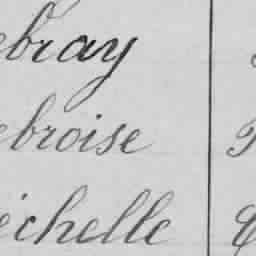 ebray
ebroise
échelle